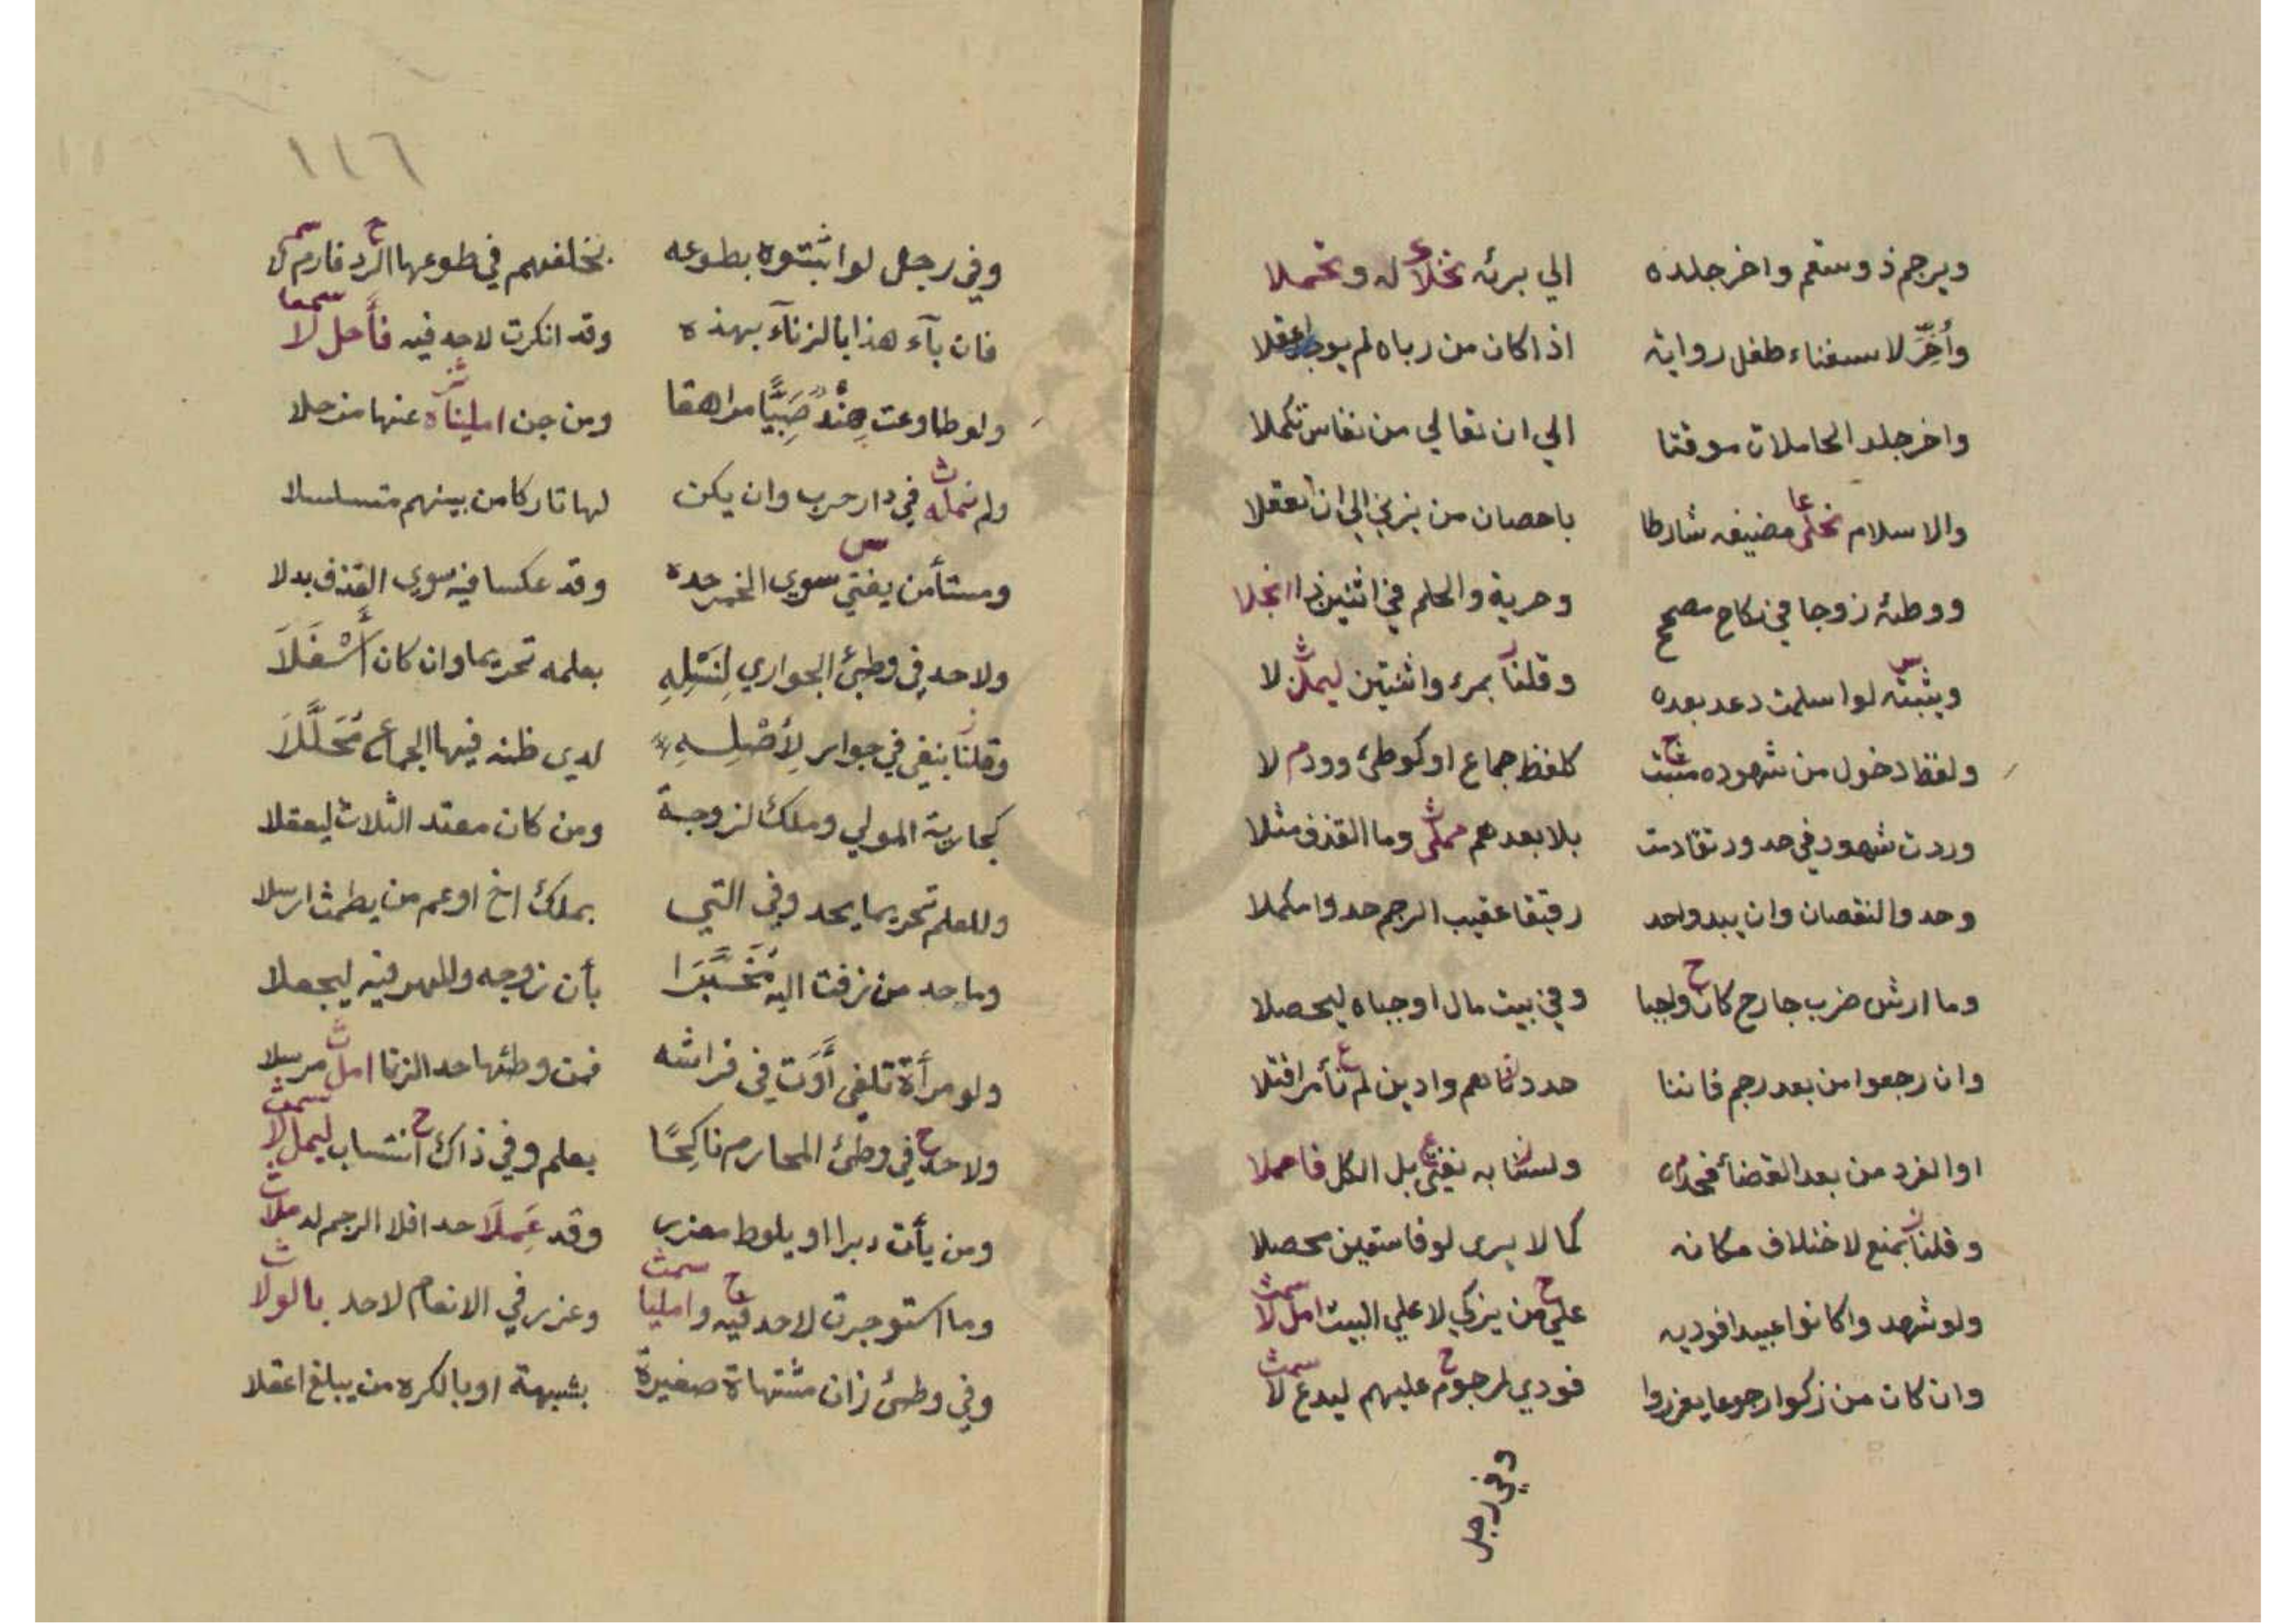 ويرجم ذو سقم واخر جلده الي برئه نخلا له وتحملا
وأخر لاستغناء طفل رواية اذا كان من رباه لم يوجد اعقلا
واخر جلد الحاملات موقتا الي ان تعالي من نفاس تكملا
والاسلام نخلي مضيفه شارطا باحصان من يزني الي ان تعقلا
ووطئه زوجا في نكاح مصحح وحرية والحلم في اثنين ذا انجلا
ويثبته لو اسلمت دعد بعده وقلنا بمرء واثنتين ليملن لا
ولفظ دخول من شهوده مثبت كلفظ جماع او كوطئ وودم لا
وردت شهود في حدود تقادمت بلا بعدهم مملي وما القذف مثلا
وحد والنقصان وان يبد واحد رقيقا عقيب الرجم حدوا مكملا
وما ارش ضرب جارح كان واجبا وفي بيت مال اوجباه ليحصلا
وان رجعوا من بعد رجم فاننا حددناهم وادين لم نأمر اقتلا
او الفرد من بعد القضاء فحده ولسنا به نفتي بل الكل فاحملا
وقلنا بمنع لاختلاف مكانه كما لا يرى لو فاسقين محصلا
ولو شهدوا كانوا عبيدا فوديه علي من يزكي لا علي البيت امل لا
وان كان من زكوا رجوعا يعزروا فودي لمرجوم عليهم ليدع لا
وفي رجل
١١٦
وفي رجل لو اثبتوه بطوعه بخلفهم في طوعها الرد فارم ل
فان بآء هذا بالزنآء بهذه وقد انكرت لا حد فيه فأحل لا
ولو طاوعت هند صبيا مراهقا ومن جن امليناه عنها مزحلا
ولم نمله في دار حرب وان يكن لها تاركا من بينهم متسلسلا
ومستأمن يفتي سوي الخمر حده وقد عكسا فيه سوي القذف بدلا
ولا حد في وطئ الجواري لنسله بعلمه تحريما وان كان أسفلا
وقلنا بنفي في جوار لأصله لدي ظنه فيها الجماع محللا
كجارية المولي وملك لزوجة ومن كان معتد الثلاث ليعقلا
وللعلم تحريما يحد وفي التي بملك اخ او عم من يطمث ارسلا
وما حد من زفت اليه مخبرا بأن زوجه وللمهر فيه ليجعلا
ولو مرأة تلفي أوت في فراشه فمن وطئها حد الزنا امل مرسلا
ولا حد في وطئ المحارم ناكحا بعلم وفي ذاك انتساب ليمل لا
ومن يأت دبرا او يلوط معزر وقد عملا حد افلا الرجم له ملا
وما استوجرت لا حد فيه وامليا وعزر في الانعام لا حد بالولا
وفي وطئ زان مشتهاة صغيرة بشبهة او بالكره من يبلغ اعقلا